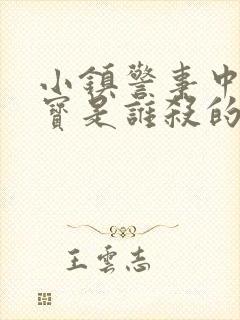 小鎮警事中
寶是誰殺的
王雲志